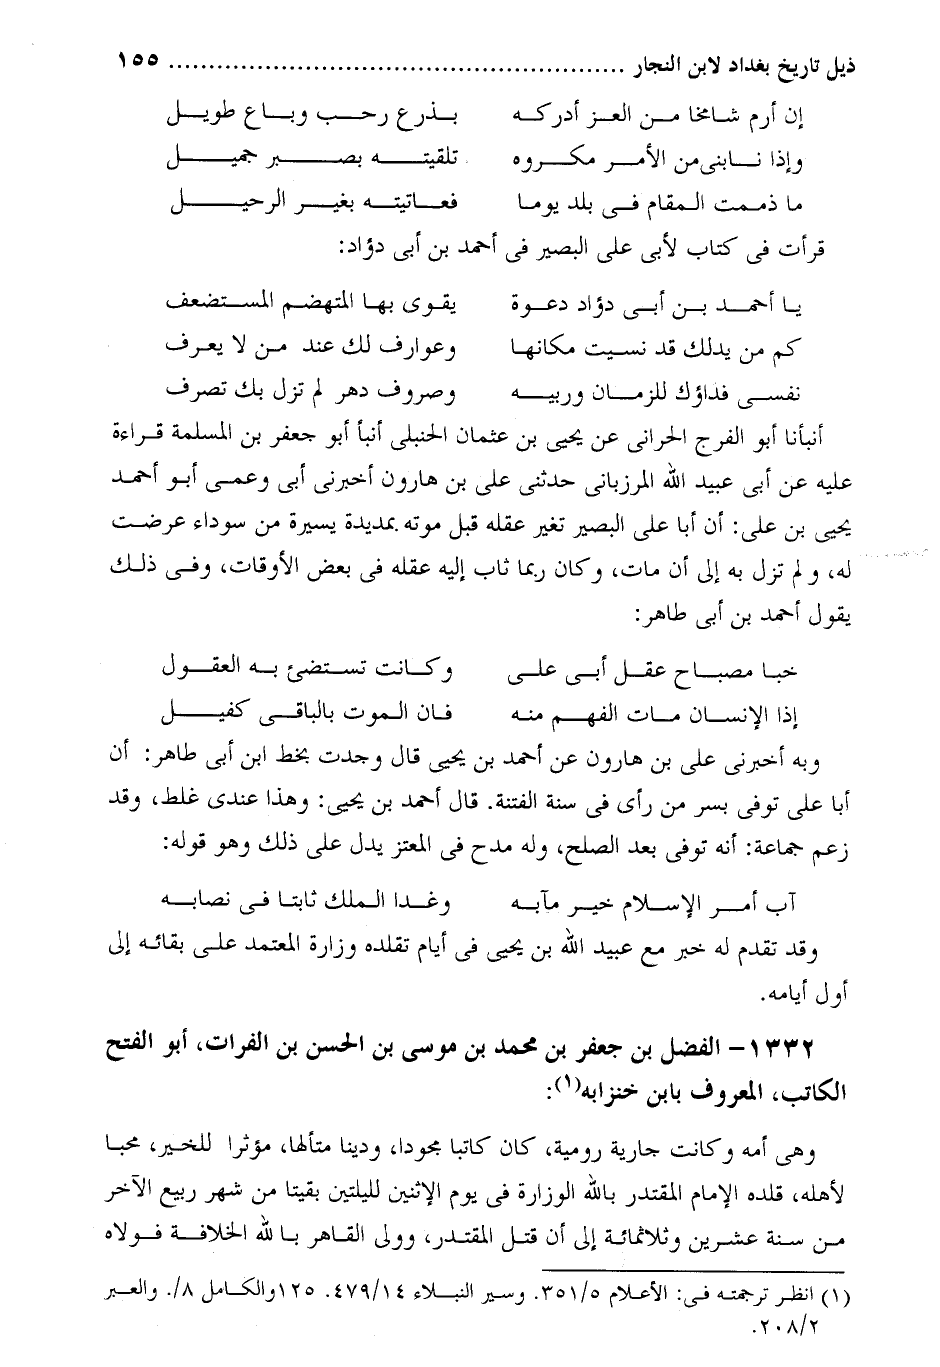 ذيل تاريخ بغداد لابن النجار ........................................................ ١٥٥
إن أرم شامخا من العز أدركه بذرع رحب وباع طويل
وإذا نابنى من الأمر مكروه تلقيته بصبر جميل
ما ذممت المقام فى بلد يوما فعاتيته بغير الرحيل
قرأت فى كتاب لأبى على البصير فى أحمد بن أبى دؤاد:
يا أحمد بن أبى دؤاد دعوة يقوى بها المتهضم المستضعف
كم من يدلك قد نسيت مكانها وعوارف لك عند من لا يعرف
نفسى فداؤك للزمان وريبه وصروف دهر لم تزل بك تصرف
أنبأنا أبو الفرج الحرانى عن يحيى بن عثمان الحنبلى أنبأ أبو جعفر بن المسلمة قراءة
عليه عن أبى عبيد الله المرزبانى حدثنى على بن هارون أخبرنى أبى وعمى أبو أحمد
يحيى بن على: أن أبا على البصير تغير عقله قبل موته بمديدة يسيرة من سوداء عرضت
له، ولم تزل به إلى أن مات، وكان ربما ثاب إليه عقله فى بعض الأوقات، وفى ذلك
يقول أحمد بن أبى طاهر:
خبا مصباح عقل أبى على وكانت تستضئ به العقول
إذا الإنسان مات الفهم منه فان الموت بالباقى كفيل
وبه أخبرنى على بن هارون عن أحمد بن يحيى قال وجدت بخط ابن أبى طاهر: أن
أبا على توفى بسر من رأى فى سنة الفتنة. قال أحمد بن يحيى: وهذا عندى غلط، وقد
زعم جماعة: أنه توفى بعد الصلح، وله مدح فى المعتز يدل على ذلك وهو قوله:
آب أمر الإسلام خير مآبه وغدا الملك ثابتا فى نصابه
وقد تقدم له خبر مع عبيد الله بن يحيى فى أيام تقلده وزارة المعتمد على بقائه إلى
أول أيامه.
١٣٣٢- الفضل بن جعفر بن محمد بن موسى بن الحسن بن الفرات، أبو الفتح
الكاتب، المعروف بابن خنزابه(١):
وهى أمه وكانت جارية رومية، كان كاتبا مجودا، ودينا متألها، مؤثرا للخير، محبا
لأهله، قلده الإمام المقتدر بالله الوزارة فى يوم الإثنين لليلتين بقيتا من شهر ربيع الآخر
من سنة عشرين وثلاثمائة إلى أن قتل المقتدر، وولى القاهر بالله الخلافة فولاه
(١) انظر ترجمته فى: الأعلام ٣٥١/٥. وسير النبلاء ٤٧٩/١٤. ١٢٥والكامل ٨/. والعبر
٢٠٨/٢.